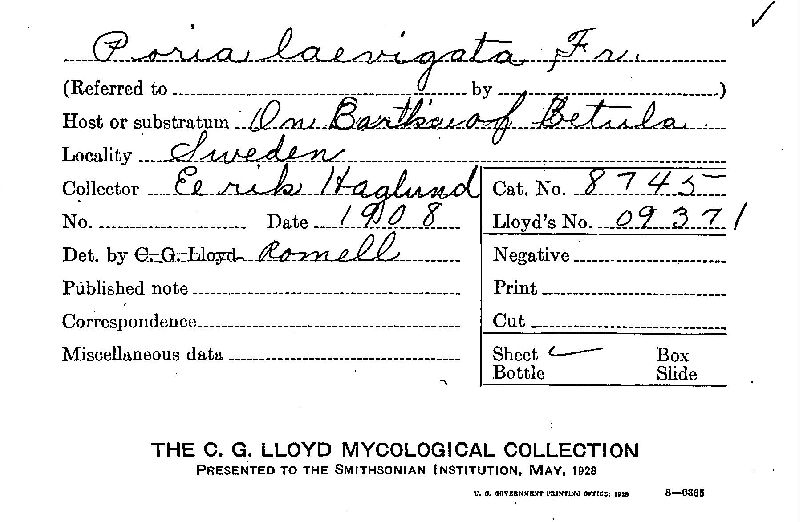 Poria laevigata Fr.
(Referred to by )
Host or substratum On Bark of Betula
Locality Sweden
Collector Eerik Haglund
Cat. No. 8745
No. Date 1908
Lloyd's No. 09371
Det. by C. G. Lloyd Romell
Negative
Published note
Print
Correspondence
Cut
Miscellaneous data
Sheet ✓ Box
Bottle Slide
THE C. G. LLOYD MYCOLOGICAL COLLECTION
PRESENTED TO THE SMITHSONIAN INSTITUTION, MAY, 1928
U. S. GOVERNMENT PRINTING OFFICE: 1928 8—6365